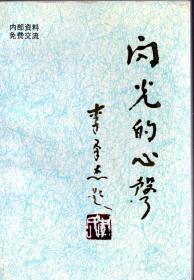 内部资料
免费交流
闪光的心声
李手杰题